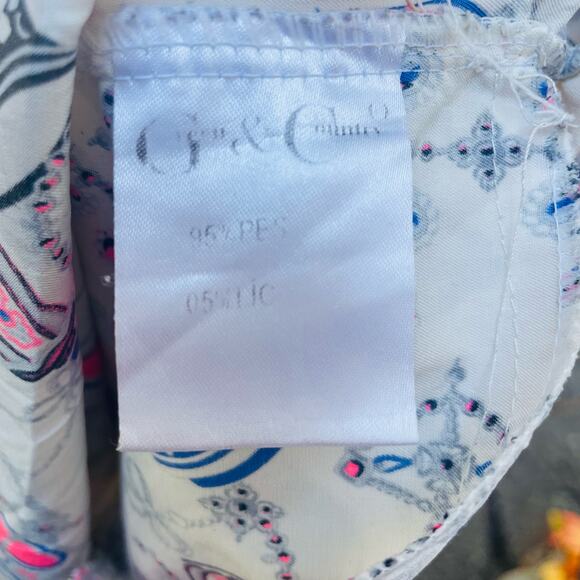 & Country
95% PES
05% LİC